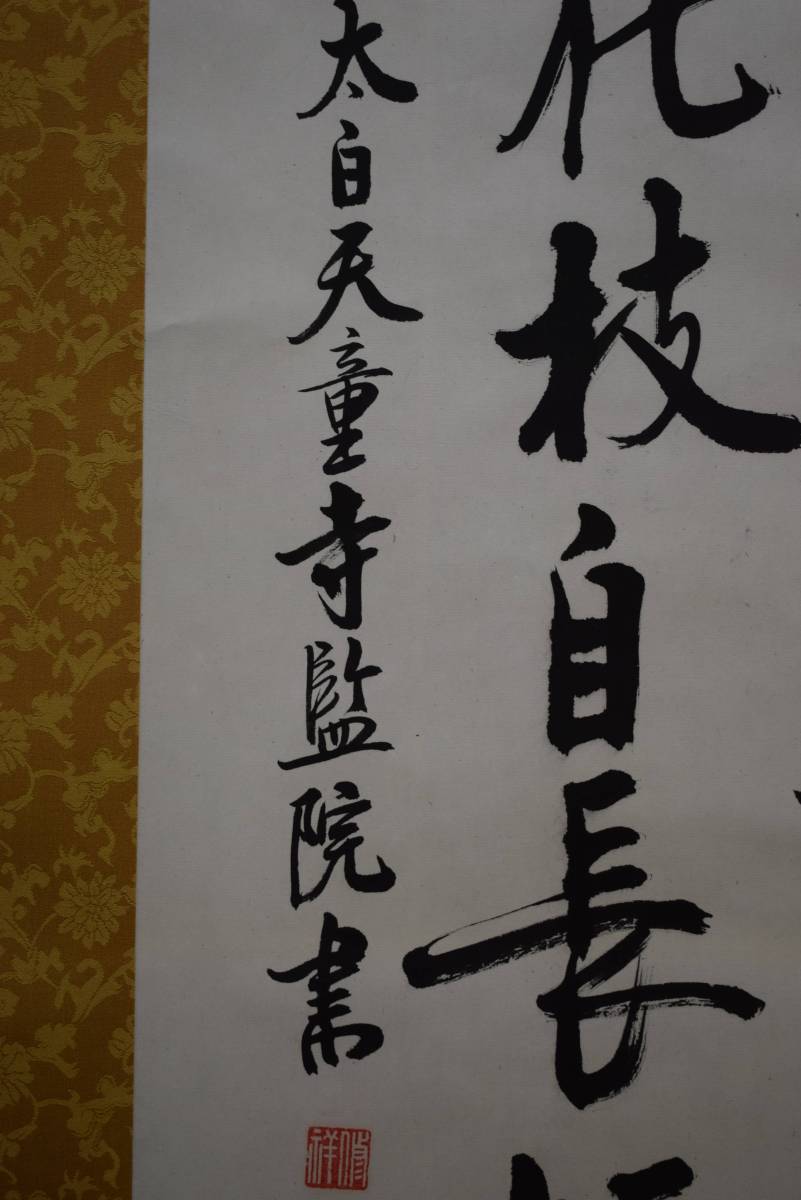 花枝自長
太白天童寺監院書
修祥